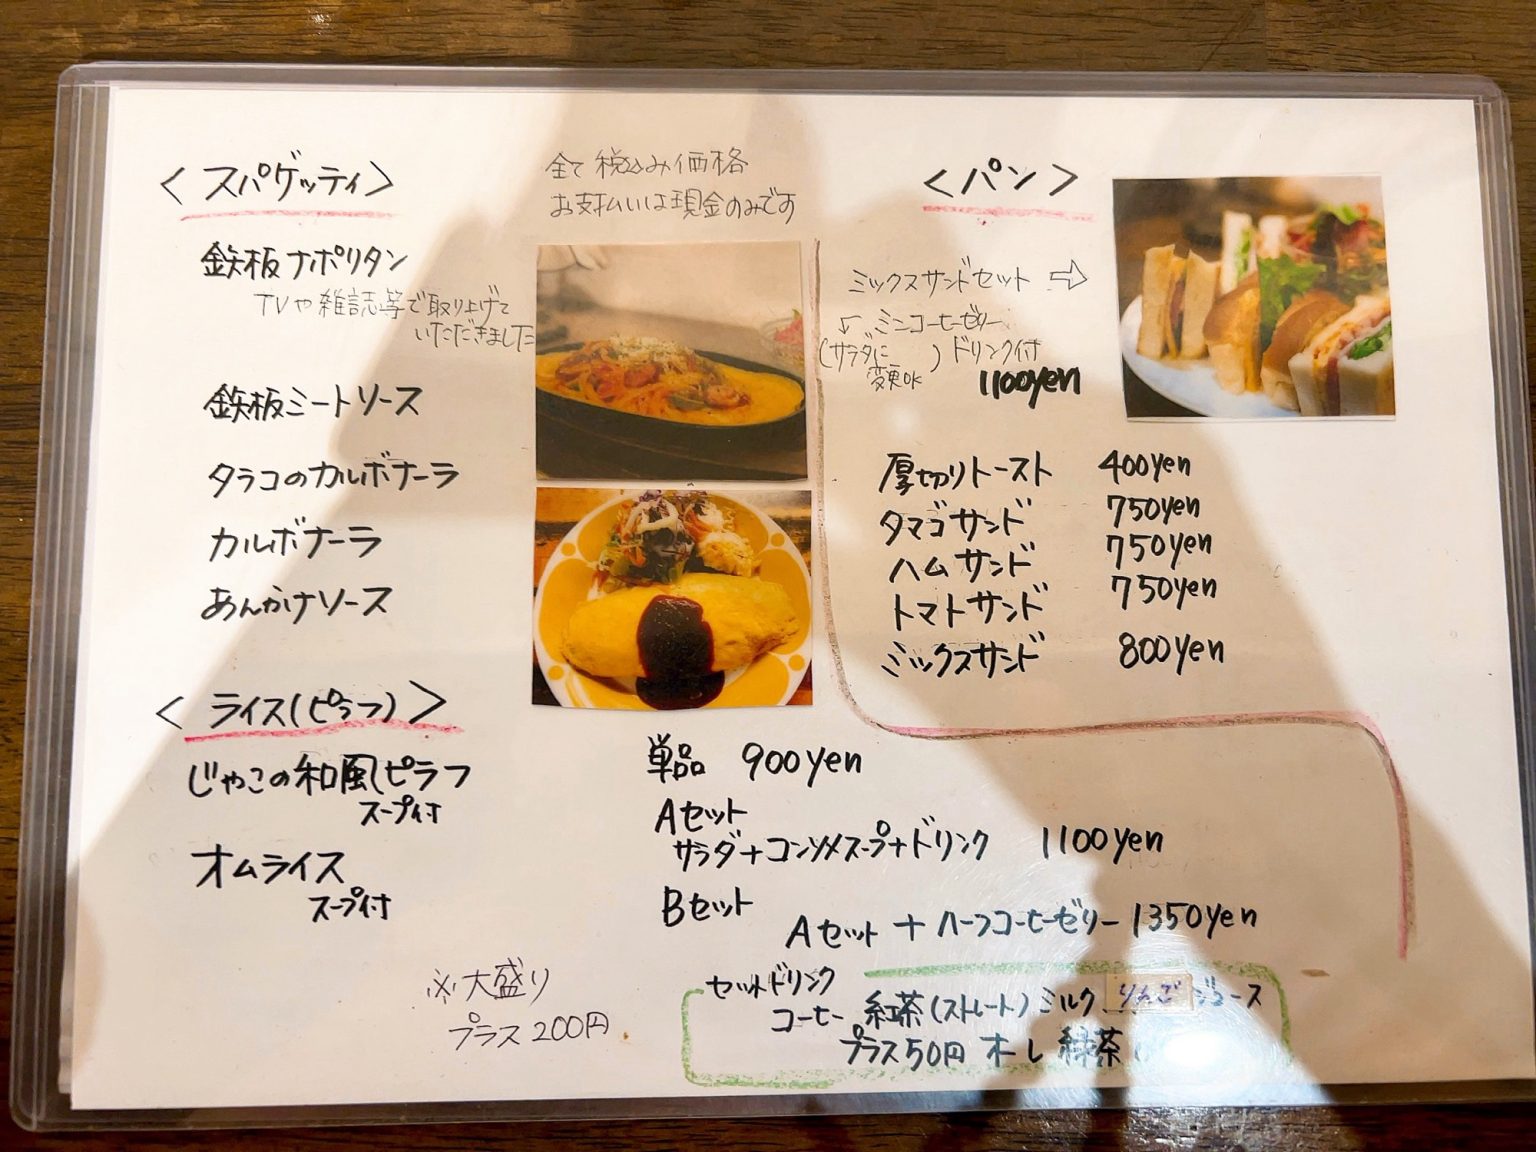 ＜スパゲッティ＞
鉄板ナポリタン
TVや雑誌等で取り上げて
いただきました
鉄板ミートソース
タラコのカルボナーラ
カルボナーラ
あんかけソース
＜ライス(ピラフ)＞
じゃこの和風ピラフ
スープ付
オムライス
スープ付
※大盛り
プラス200円
全て税込み価格
お支払いは現金のみです
＜パン＞
ミックスサンドセット ⇨
ミニコーヒーゼリー
(サラダに
変更OK) ドリンク付
1100yen
厚切りトースト 400yen
タマゴサンド 750yen
ハムサンド 750yen
トマトサンド 750yen
ミックスサンド 800yen
単品 900yen
Aセット
サラダ+コンソメスープ+ドリンク 1100yen
Bセット
Aセット + ハーフコーヒーゼリー 1350yen
セットドリンク
コーヒー 紅茶(ストレート) ミルク りんごジュース
プラス50円 オーレ 緑茶